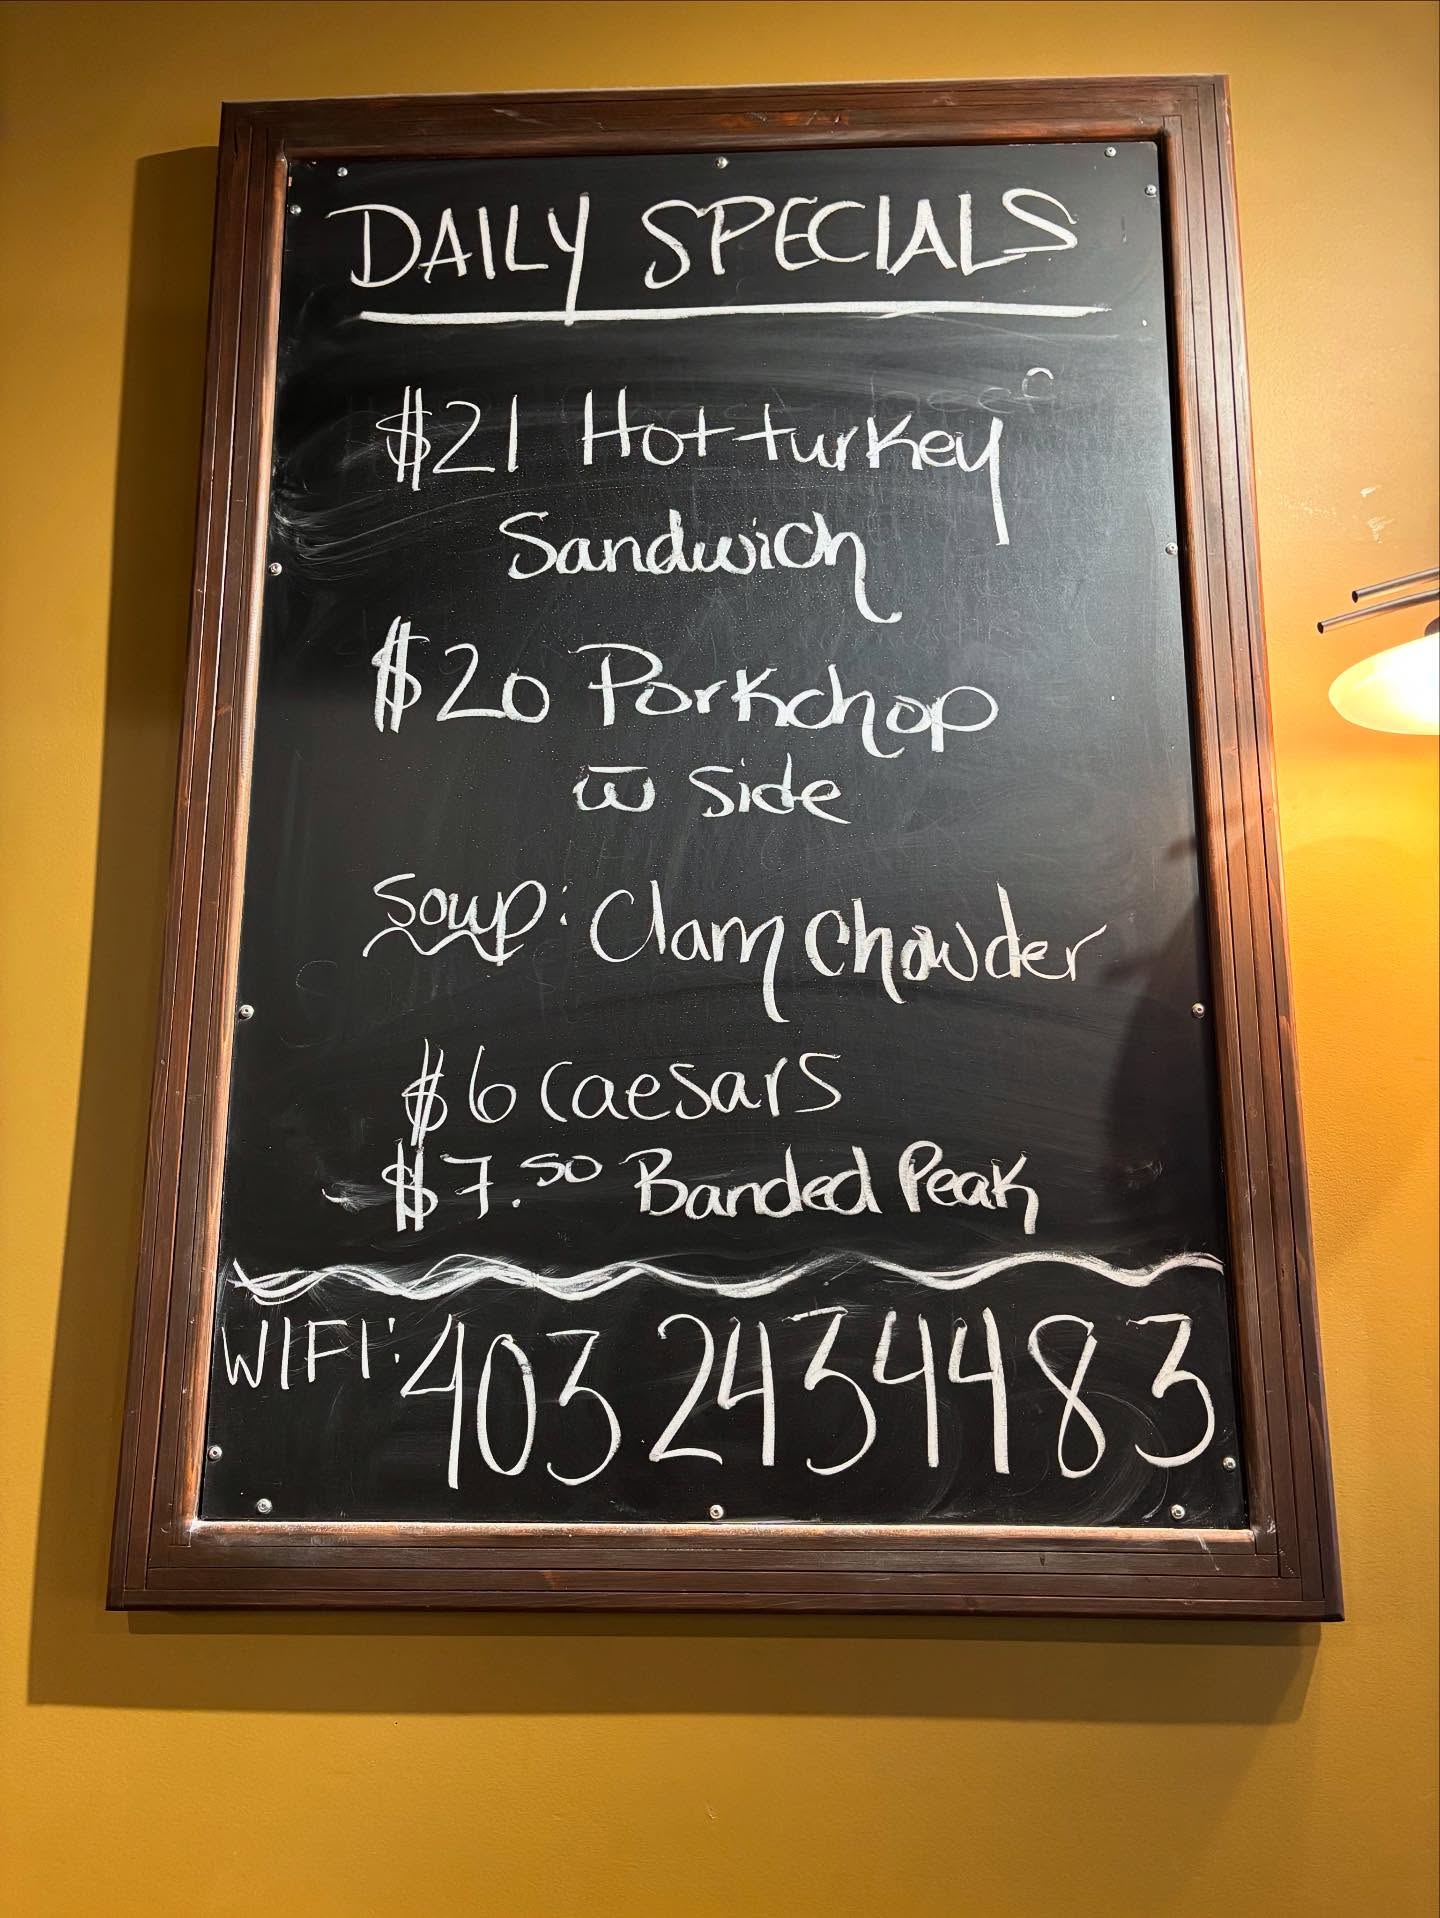 DAILY SPECIALS
$21 Hot turkey
Sandwich
$20 Porkchop
w̅ side
Soup: Clam Chowder
$6 Caesars
$7.50 Banded Peak
WIFI: 403 2434483